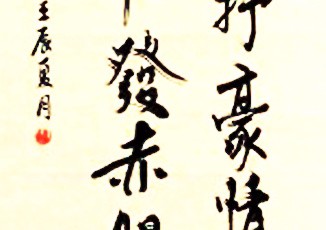 抒豪情
發赤
壬辰夏月